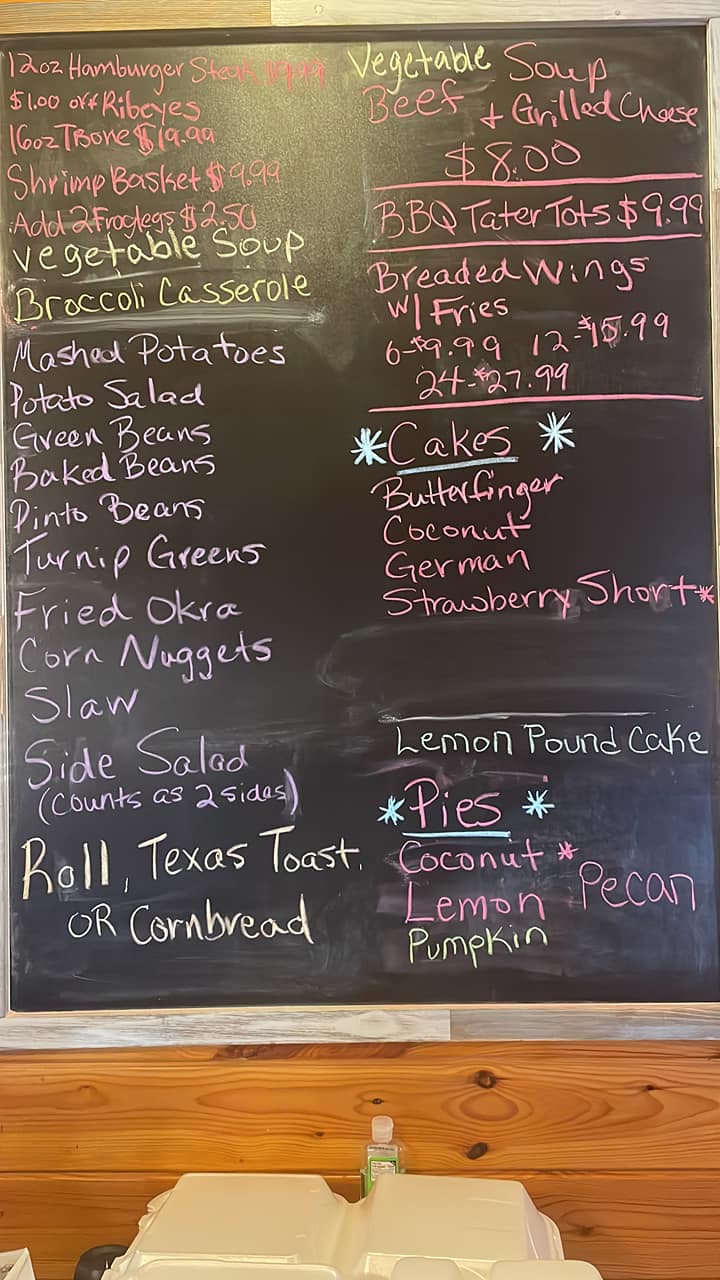 12oz Hamburger Steak $9.99
$1.00 off Ribeyes
16oz TBone $19.99
Shrimp Basket $9.99
Add 2 Froglegs $2.50
Vegetable Soup
Broccoli Casserole
Mashed Potatoes
Potato Salad
Green Beans
Baked Beans
Pinto Beans
Turnip Greens
Fried Okra
Corn Nuggets
Slaw
Side Salad
(Counts as 2 sides)
Roll, Texas Toast,
OR Cornbread
Vegetable Soup
Beef + Grilled Cheese
$8.00
BBQ Tater Tots $9.99
Breaded Wings
W/ Fries
6-$9.99 12-$15.99
24-$27.99
*Cakes*
Butterfinger
Coconut
German
Strawberry Short*
Lemon Pound Cake
*Pies*
Coconut*
Lemon Pecan
Pumpkin